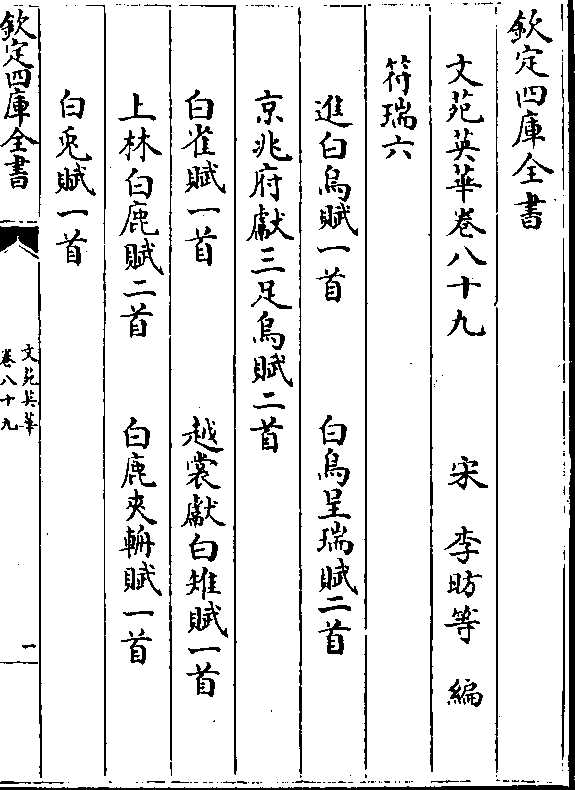 欽定四庫全書
文苑英華卷八十九 宋 李昉等 編
符瑞六
進白烏賦一首 白烏呈瑞賦二首
京兆府獻三足烏賦二首
白雀賦一首 越裳獻白雉賦一首
上林白鹿賦二首 白鹿夾轓賦一首
白兎賦一首
欽定四庫全書
文苑英華
卷八十九
一